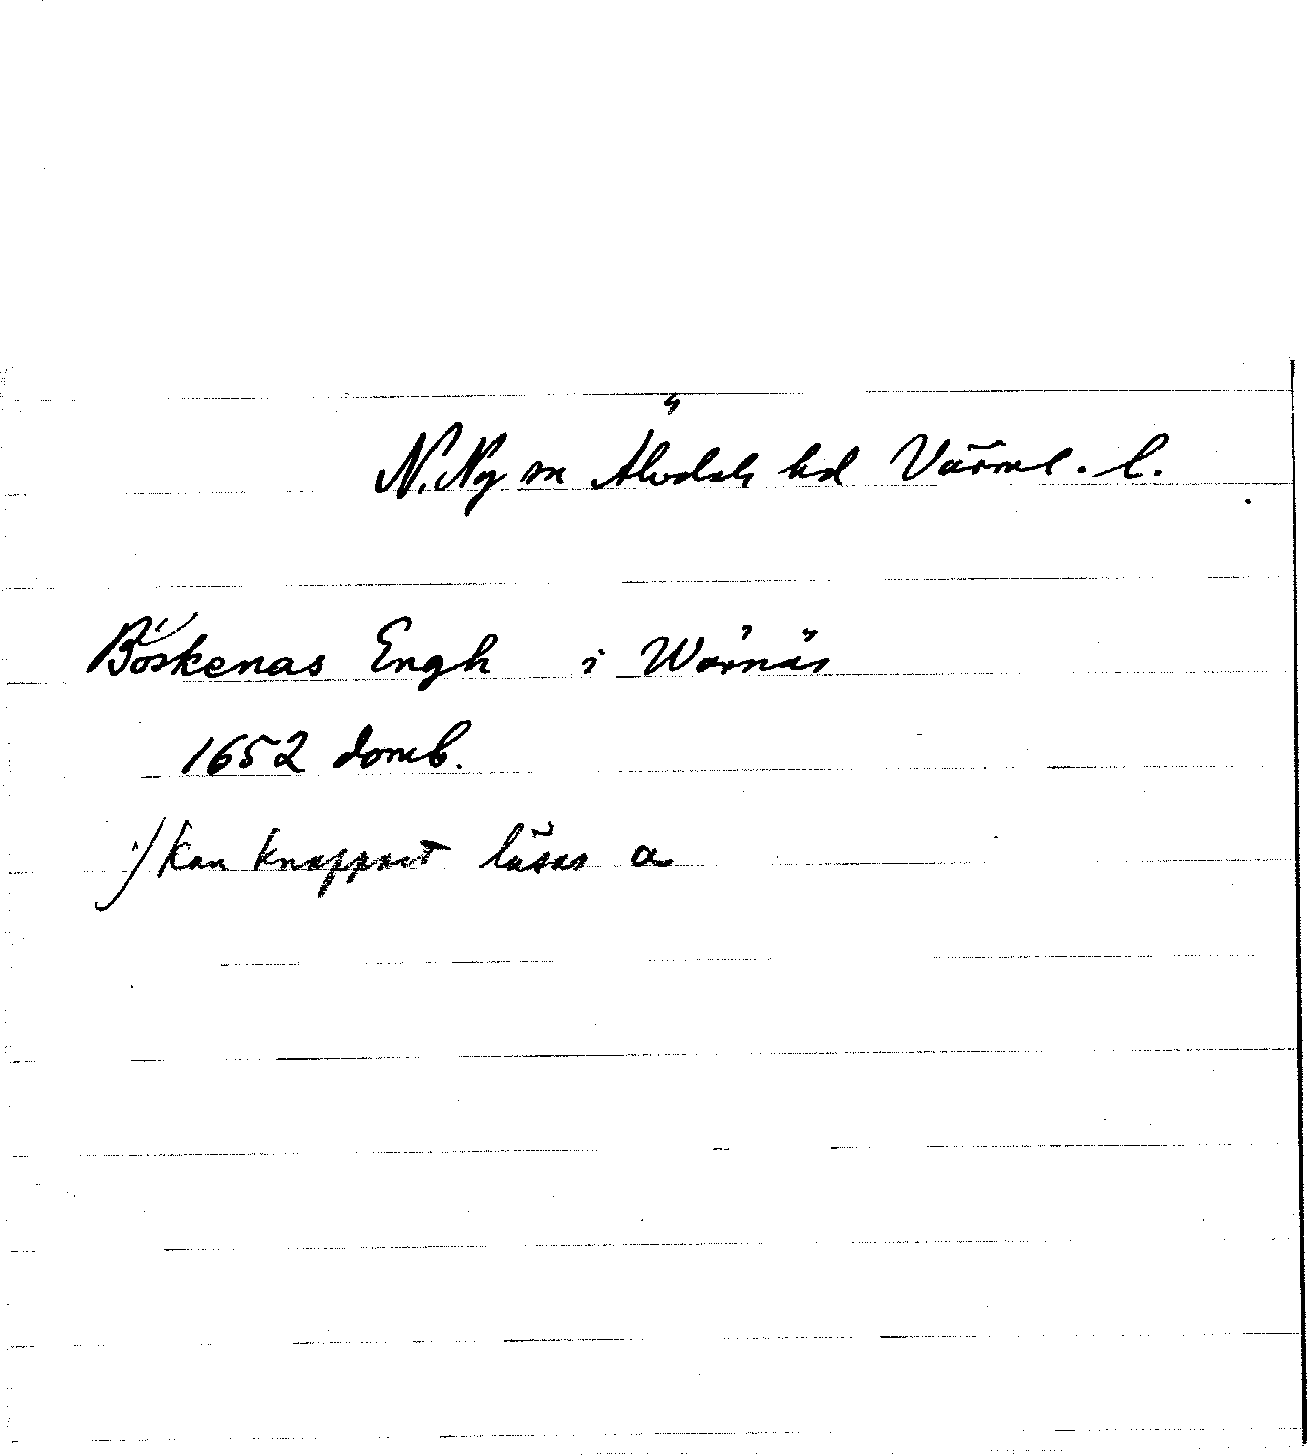 N. Ny sn Älvdals hd Värml. l.
Böskenas Engh i Wärnäs
1652 domb.
·/ kan knappast läsas a